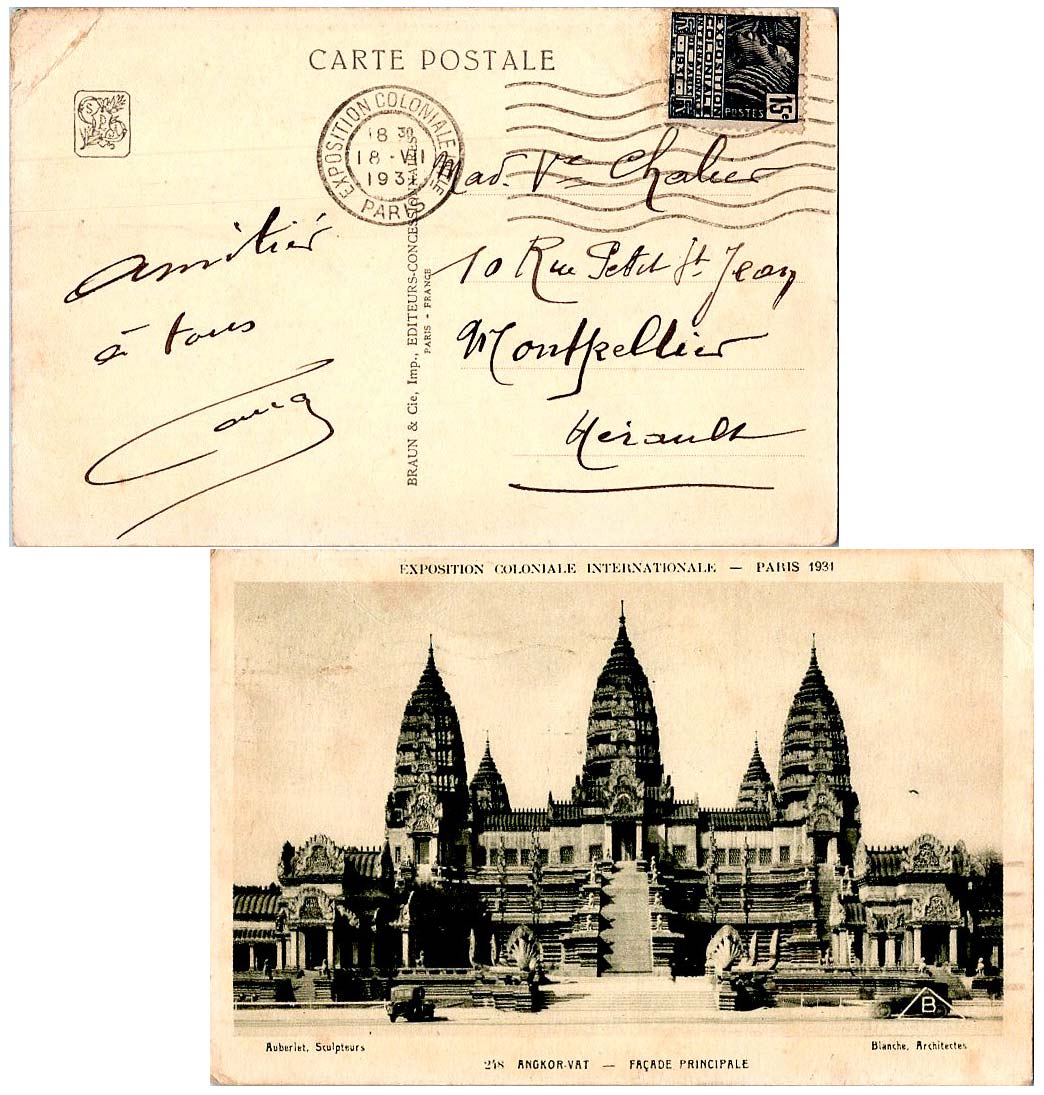 CARTE POSTALE
EXPOSITION COLONIALE INTLE
PARIS
18 30
18 - VII
1931
EXPOSITION
COLONIALE
INTERNATIONALE
PARIS 1931
POSTES
15c
Mad. Ve Chalier
10 Rue Petit St. Jean
Montpellier
Hérault
amitiés
à tous
BRAUN & Cie, Imp., EDITEURS-CONCESSIONNAIRES
PARIS - FRANCE
EXPOSITION COLONIALE INTERNATIONALE — PARIS 1931
B
Auberlet, Sculpteurs
Blanche, Architectes
248 ANGKOR-VAT — FAÇADE PRINCIPALE